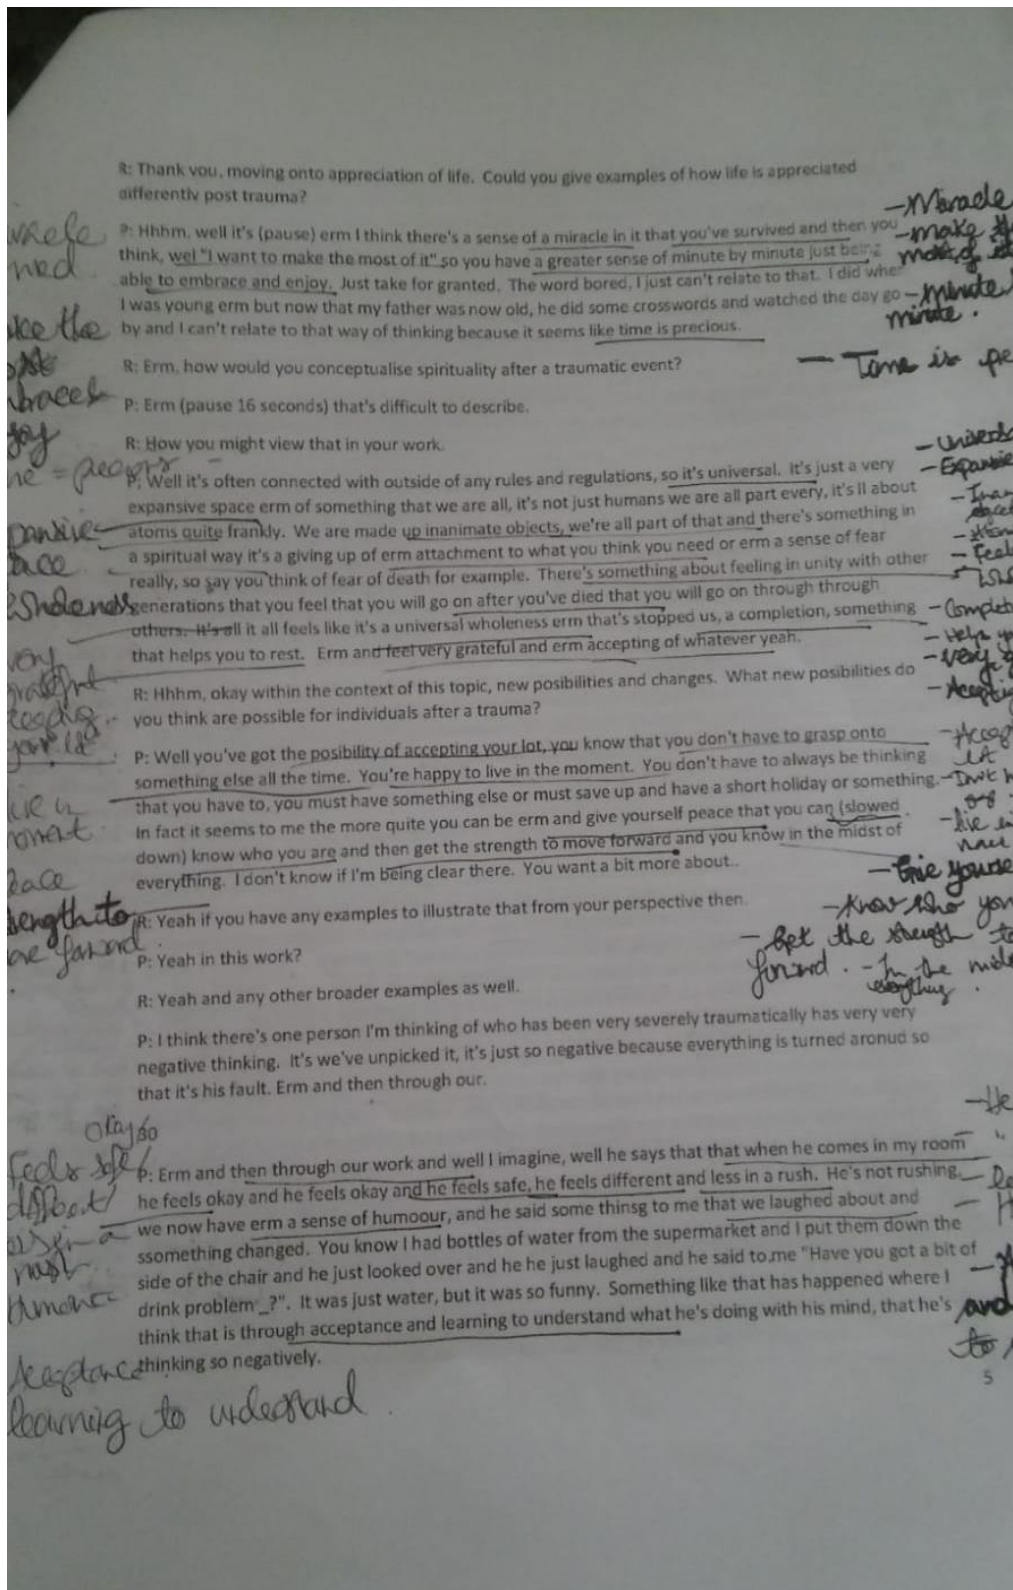 R: Thank you, moving onto appreciation of life. Could you give examples of how life is appreciated
differently post trauma?
P: Hhhm, well it's (pause) erm I think there's a sense of a miracle in it that you've survived and then you
think, wel "I want to make the most of it" so you have a greater sense of minute by minute just being
able to embrace and enjoy. Just take for granted. The word bored, I just can't relate to that. I did whe
I was young erm but now that my father was now old, he did some crosswords and watched the day go
by and I can't relate to that way of thinking because it seems like time is precious.
- Miracle
- make
most of
- minute
minute.
- Time is
R: Erm, how would you conceptualise spirituality after a traumatic event?
P: Erm (pause 16 seconds) that's difficult to describe.
R: How you might view that in your work.
P: Well it's often connected with outside of any rules and regulations, so it's universal. It's just a very
expansive space erm of something that we are all, it's not just humans we are all part every, it's ll about
atoms quite frankly. We are made up inanimate objects, we're all part of that and there's something in
a spiritual way it's a giving up of erm attachment to what you think you need or erm a sense of fear
really, so say you think of fear of death for example. There's something about feeling in unity with other
generations that you feel that you will go on after you've died that you will go on through through
others. It's all it all feels like it's a universal wholeness erm that's stopped us, a completion, something
that helps you to rest. Erm and feel very grateful and erm accepting of whatever yeah.
R: Hhhm, okay within the context of this topic, new posibilities and changes. What new posibilities do
you think are possible for individuals after a trauma?
P: Well you've got the posibility of accepting your lot, you know that you don't have to grasp onto
something else all the time. You're happy to live in the moment. You don't have to always be thinking
that you have to, you must have something else or must save up and have a short holiday or something.
In fact it seems to me the more quite you can be erm and give yourself peace that you can (slowed
down) know who you are and then get the strength to move forward and you know in the midst of
everything. I don't know if I'm being clear there. You want a bit more about..
- Give
- Know who you
- Get the strength to
forward. - In the
everything.
R: Yeah if you have any examples to illustrate that from your perspective then.
P: Yeah in this work?
R: Yeah and any other broader examples as well.
P: I think there's one person I'm thinking of who has been very severely traumatically has very very
negative thinking. It's we've unpicked it, it's just so negative because everything is turned aronud so
that it's his fault. Erm and then through our.
Okay so
P: Erm and then through our work and well I imagine, well he says that that when he comes in my room
he feels okay and he feels okay and he feels safe, he feels different and less in a rush. He's not rushing,
we now have erm a sense of humoour, and he said some thinsg to me that we laughed about and
ssomething changed. You know I had bottles of water from the supermarket and I put them down the
side of the chair and he just looked over and he he just laughed and he said to.me "Have you got a bit of
drink problem_?". It was just water, but it was so funny. Something like that has happened where I
think that is through acceptance and learning to understand what he's doing with his mind, that he's
thinking so negatively.
Acceptance
learning to understand.
5